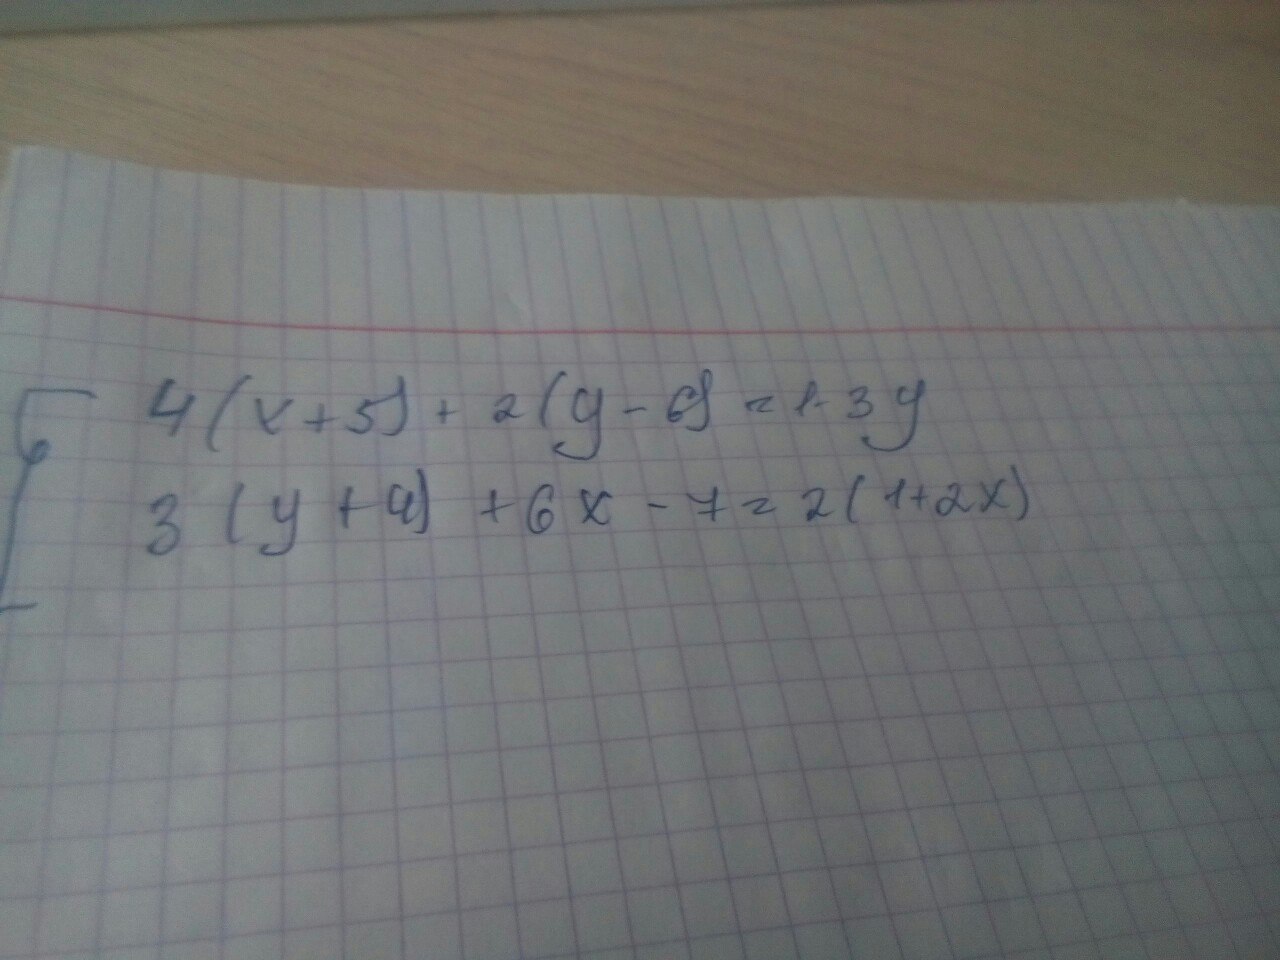 4(x+5)+2(y-6)=1-3y
3(y+4)+6x-7=2(1+2x)